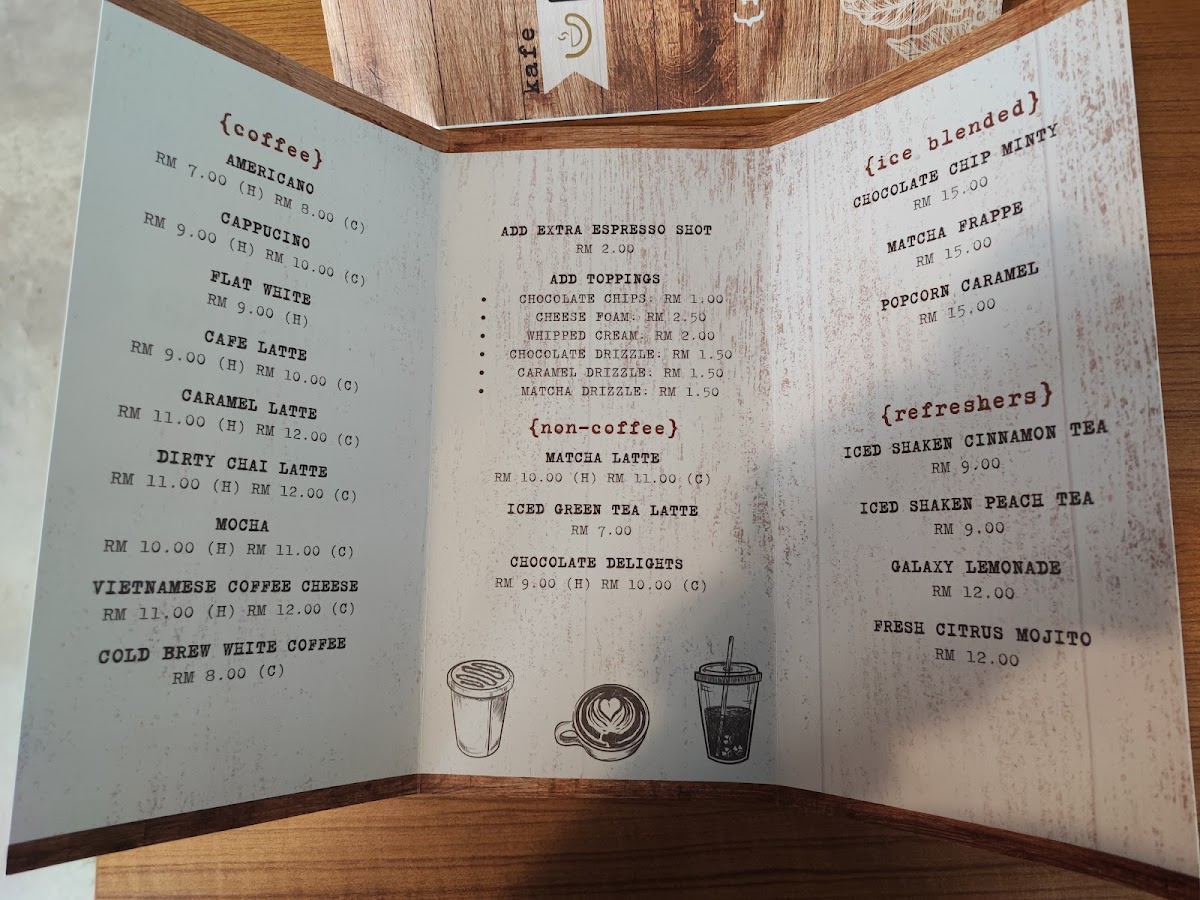 kafe
{coffee}
AMERICANO
RM 7.00 (H) RM 8.00 (C)
CAPPUCINO
RM 9.00 (H) RM 10.00 (C)
FLAT WHITE
RM 9.00 (H)
CAFE LATTE
RM 9.00 (H) RM 10.00 (C)
CARAMEL LATTE
RM 11.00 (H) RM 12.00 (C)
DIRTY CHAI LATTE
RM 11.00 (H) RM 12.00 (C)
MOCHA
RM 10.00 (H) RM 11.00 (C)
VIETNAMESE COFFEE CHEESE
RM 11.00 (H) RM 12.00 (C)
COLD BREW WHITE COFFEE
RM 8.00 (C)
ADD EXTRA ESPRESSO SHOT
RM 2.00
ADD TOPPINGS
• CHOCOLATE CHIPS: RM 1.00
• CHEESE FOAM: RM 2.50
• WHIPPED CREAM: RM 2.00
• CHOCOLATE DRIZZLE: RM 1.50
• CARAMEL DRIZZLE: RM 1.50
• MATCHA DRIZZLE: RM 1.50
{non-coffee}
MATCHA LATTE
RM 10.00 (H) RM 11.00 (C)
ICED GREEN TEA LATTE
RM 7.00
CHOCOLATE DELIGHTS
RM 9.00 (H) RM 10.00 (C)
{ice blended}
CHOCOLATE CHIP MINTY
RM 15.00
MATCHA FRAPPE
RM 15.00
POPCORN CARAMEL
RM 15.00
{refreshers}
ICED SHAKEN CINNAMON TEA
RM 9.00
ICED SHAKEN PEACH TEA
RM 9.00
GALAXY LEMONADE
RM 12.00
FRESH CITRUS MOJITO
RM 12.00